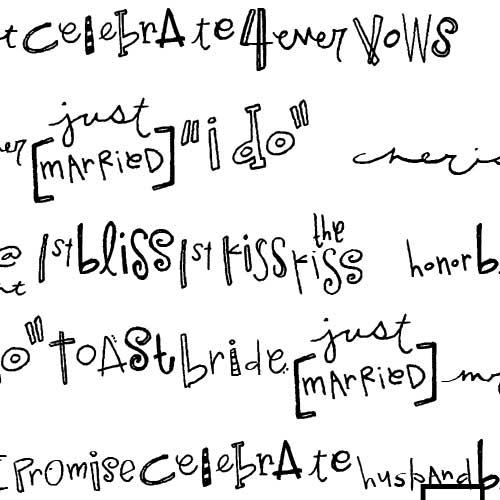 t celebrate 4ever VOWS
er [just MARRiED] "i do" cheris
@ 1st bliss 1st kiss the kiss honor b
nt
o" tOASt bride [just MARRiED] m
I PROMiSe celebrate husbANd b